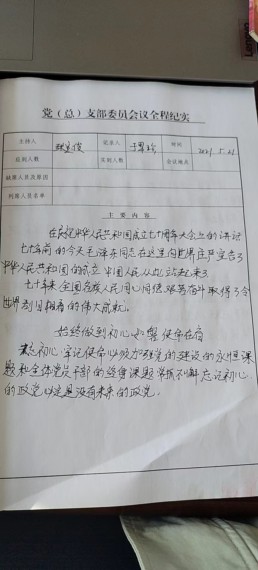 Lenovo
党（总）支部委员会议全程纪实
主持人
记录人
时间 2021.5.21
应到人数
实到人数
会议地点
缺席人员及原因
列席人员名单
主 要 内 容
在庆祝中华人民共和国成立七十周年大会上的讲话
七十年前的今天毛泽东同志在这里向世界庄严宣告了
中华人民共和国的成立 中国人民从此站起来了
七十年来 全国各族人民同心同德 艰苦奋斗 取得了令
世界刮目相看的伟大成就。
始终做到初心如磐 使命在肩
不忘初心 牢记使命 必须加强党的建设的永恒课
题和全体党员干部的终身课题常抓不懈 忘记初心
的政党必定是没有未来的政党。